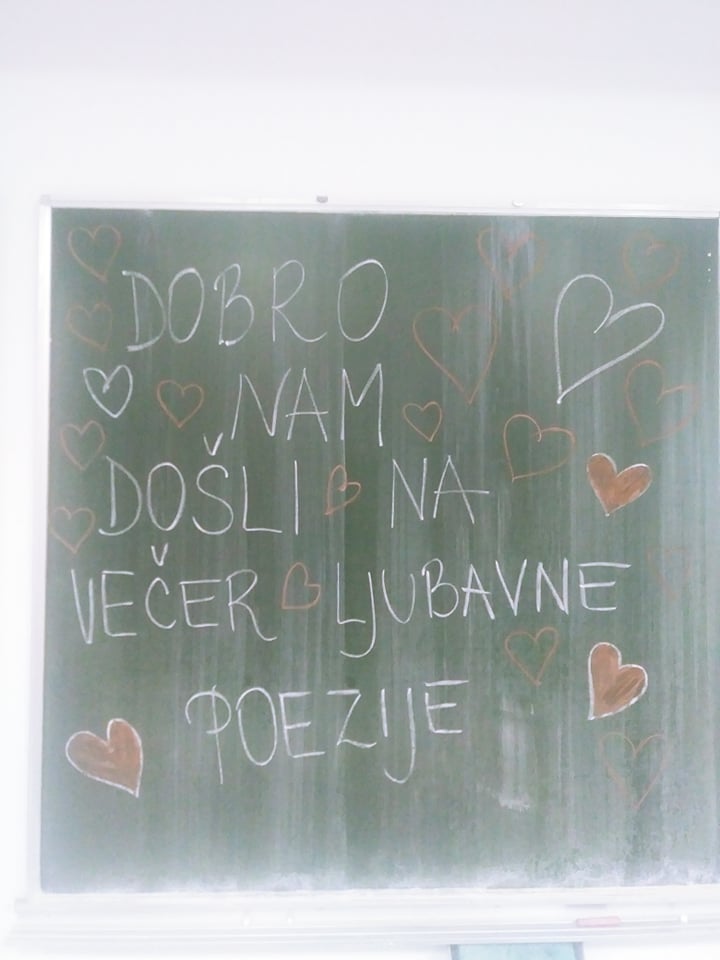 DOBRO
NAM
DOŠLI NA
VEČER LJUBAVNE
POEZIJE